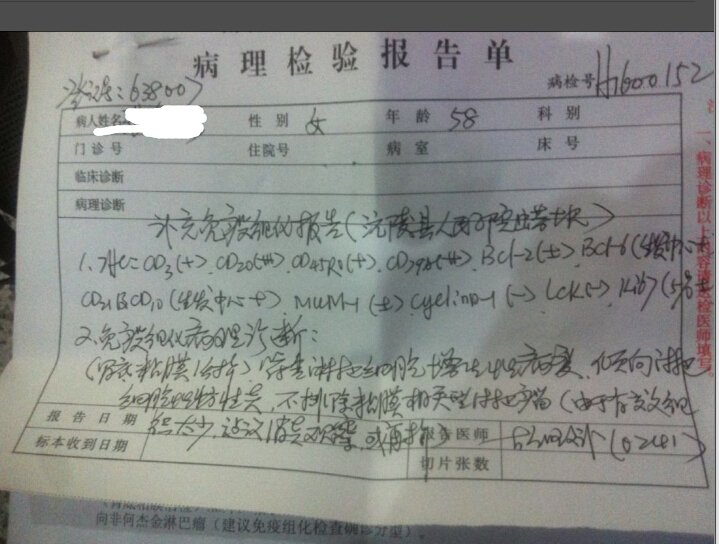 病理检验报告单
诊号:638007 病检号 H1600.152
病人姓名 性别 女 年龄 58 科别
门诊号 住院号 病室 床号
临床诊断
病理诊断
补充免疫组化报告(沅陵县人民医院蜡块)
1. IHC: CD3(+) CD20(+++) CD45R0(+) CD79a(+++) Bcl-2(±) Bcl-6(生发中心+)
CD21 CD10(生发中心+) MUM-1(±) Cyclin D-1(-) LCK(-) Ki67(5%
2.免疫组化病理诊断:
(胃窦粘膜活检)淋巴细胞增生性病变,倾向淋巴
细胞 不排除粘膜相关型淋巴瘤(由于有效组
织太少,建议随 观察,或再检)
报告日期 报告医师 (0241)
标本收到日期 切片张数
一、病理诊断以上 请送检医师填写。
向非何杰金淋巴瘤(建议免疫组化检查确诊分型)。